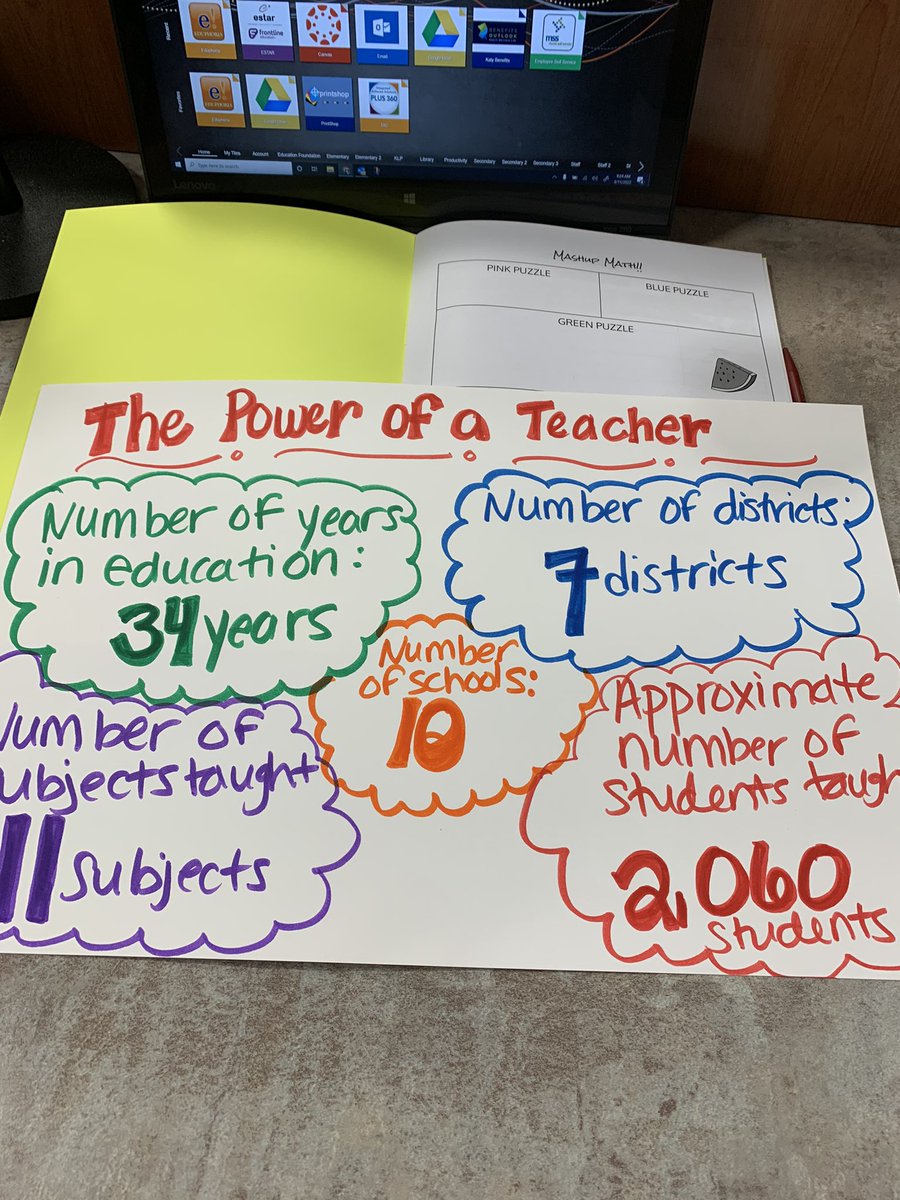 estar
EDUPHORIA
frontline
Eduphoria
ESTAR
Canvas
Email
BENEFITS
OUTLOOK
Katy Benefits
mss
Employee Self Service
EDUPHORIA
printshop
PLUS 360
Eduphoria
PrintShop
Recent
Favorites
Home My Tiles Account Education Foundation Elementary Elementary 2 KLP Library Productivity Secondary Secondary 2 Secondary 3 Staff Staff 2
Type here to search
Lenovo
MASHUP MATH!!
PINK PUZZLE
BLUE PUZZLE
GREEN PUZZLE
The Power of a Teacher
Number of years
in education:
34 years
Number of districts:
7 districts
Number
of schools:
10
Number of
subjects taught
11 subjects
Approximate
number of
students taugh
2,060
students